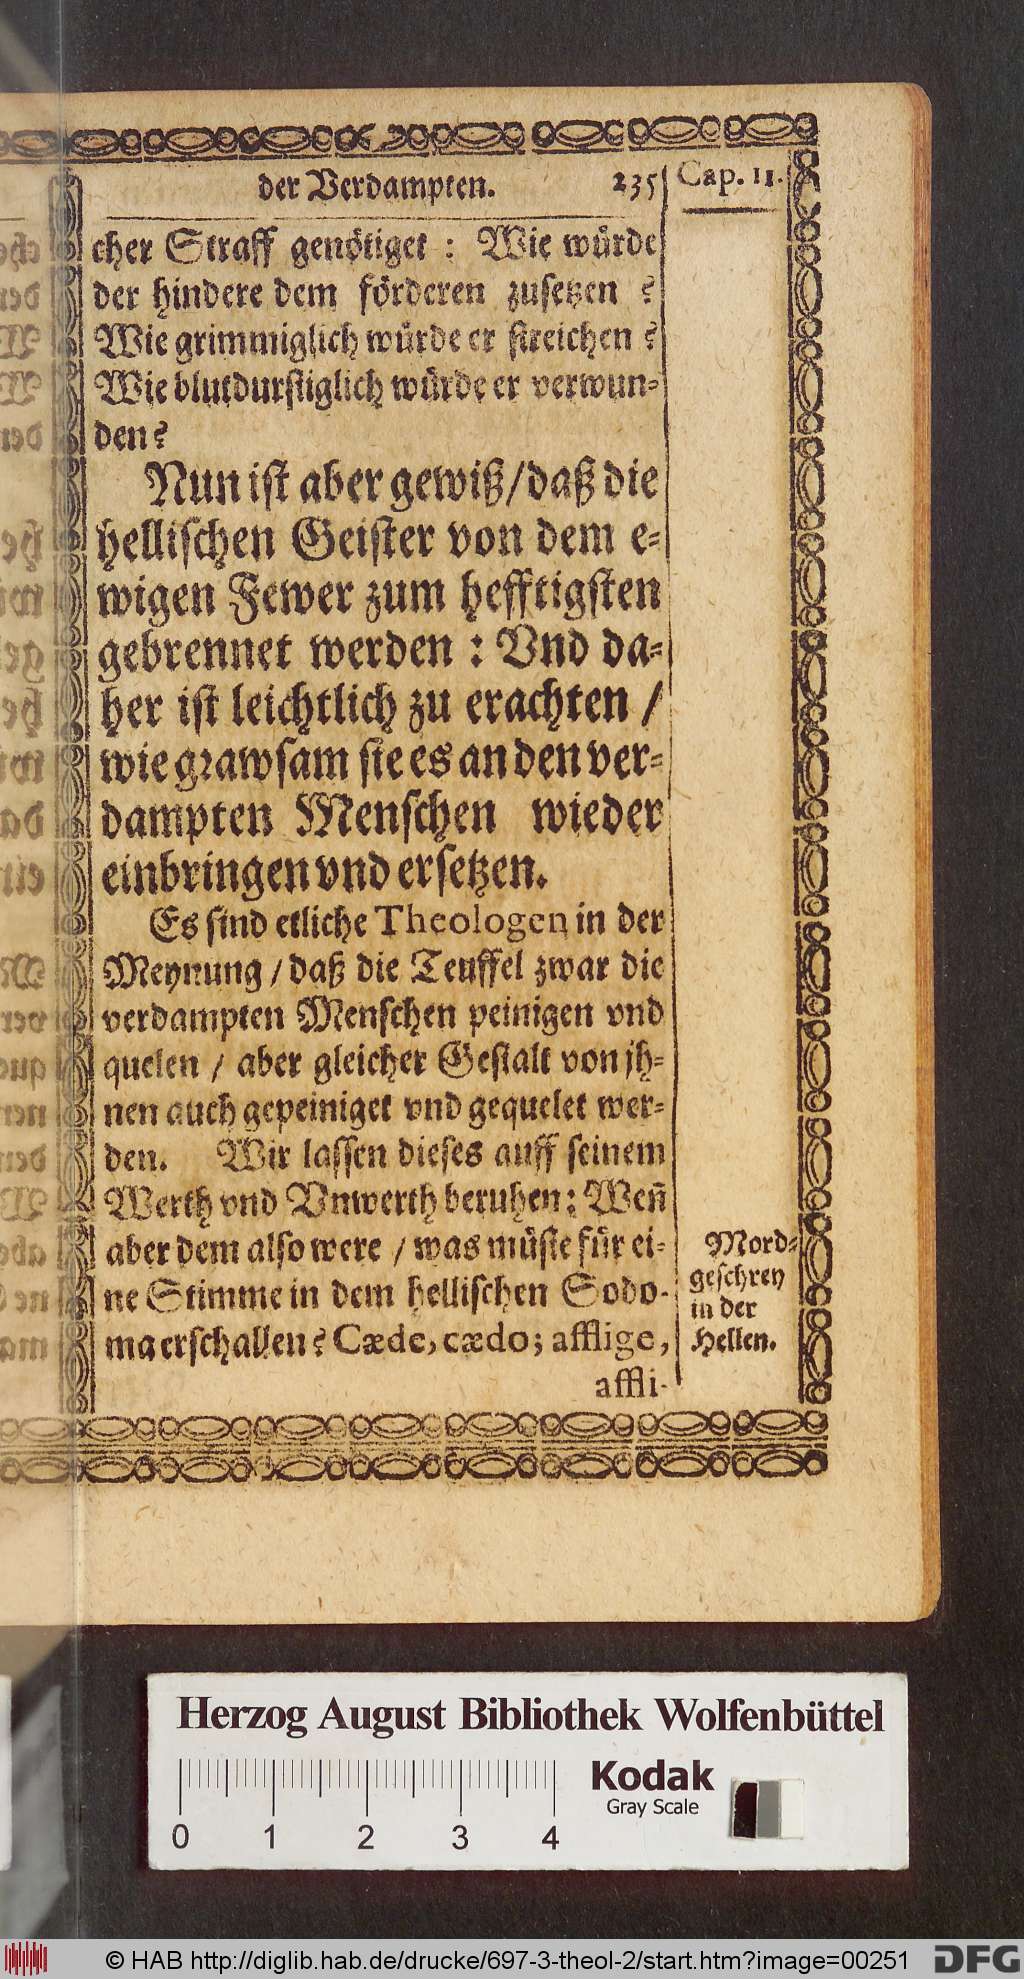 der Verdampten. 235 Cap. 11.
cher Straff genötiget : Wie würde
der hindere dem förderen zusetzen ?
Wie grimmiglich würde er streichen ?
Wie blutdurstiglich würde er verwun-
den?
Nun ist aber gewiß/daß die
hellischen Geister von dem e-
wigen Fewer zum hefftigsten
gebrennet werden : Vnd da-
her ist leichtlich zu erachten /
wie grawsam sie es an den ver-
dampten Menschen wieder
einbringen vnd ersetzen.
Es sind etliche Theologen in der
Meynung / daß die Teuffel zwar die
verdampten Menschen peinigen vnd
quelen / aber gleicher Gestalt von jh-
nen auch gepeiniget vnd gequelet wer-
den. Wir lassen dieses auff seinem
Werth vnd Vnwerth beruhen: Weñ
aber dem also were / was müste für ei-
ne Stimme in dem hellischen Sodo-
ma erschallen? Cæde, cædo; afflige,
affli-
Mord-
geschrey
in der
Hellen.
Herzog August Bibliothek Wolfenbüttel
Kodak
Gray Scale
0 1 2 3 4
© HAB http://diglib.hab.de/drucke/697-3-theol-2/start.htm?image=00251
DFG